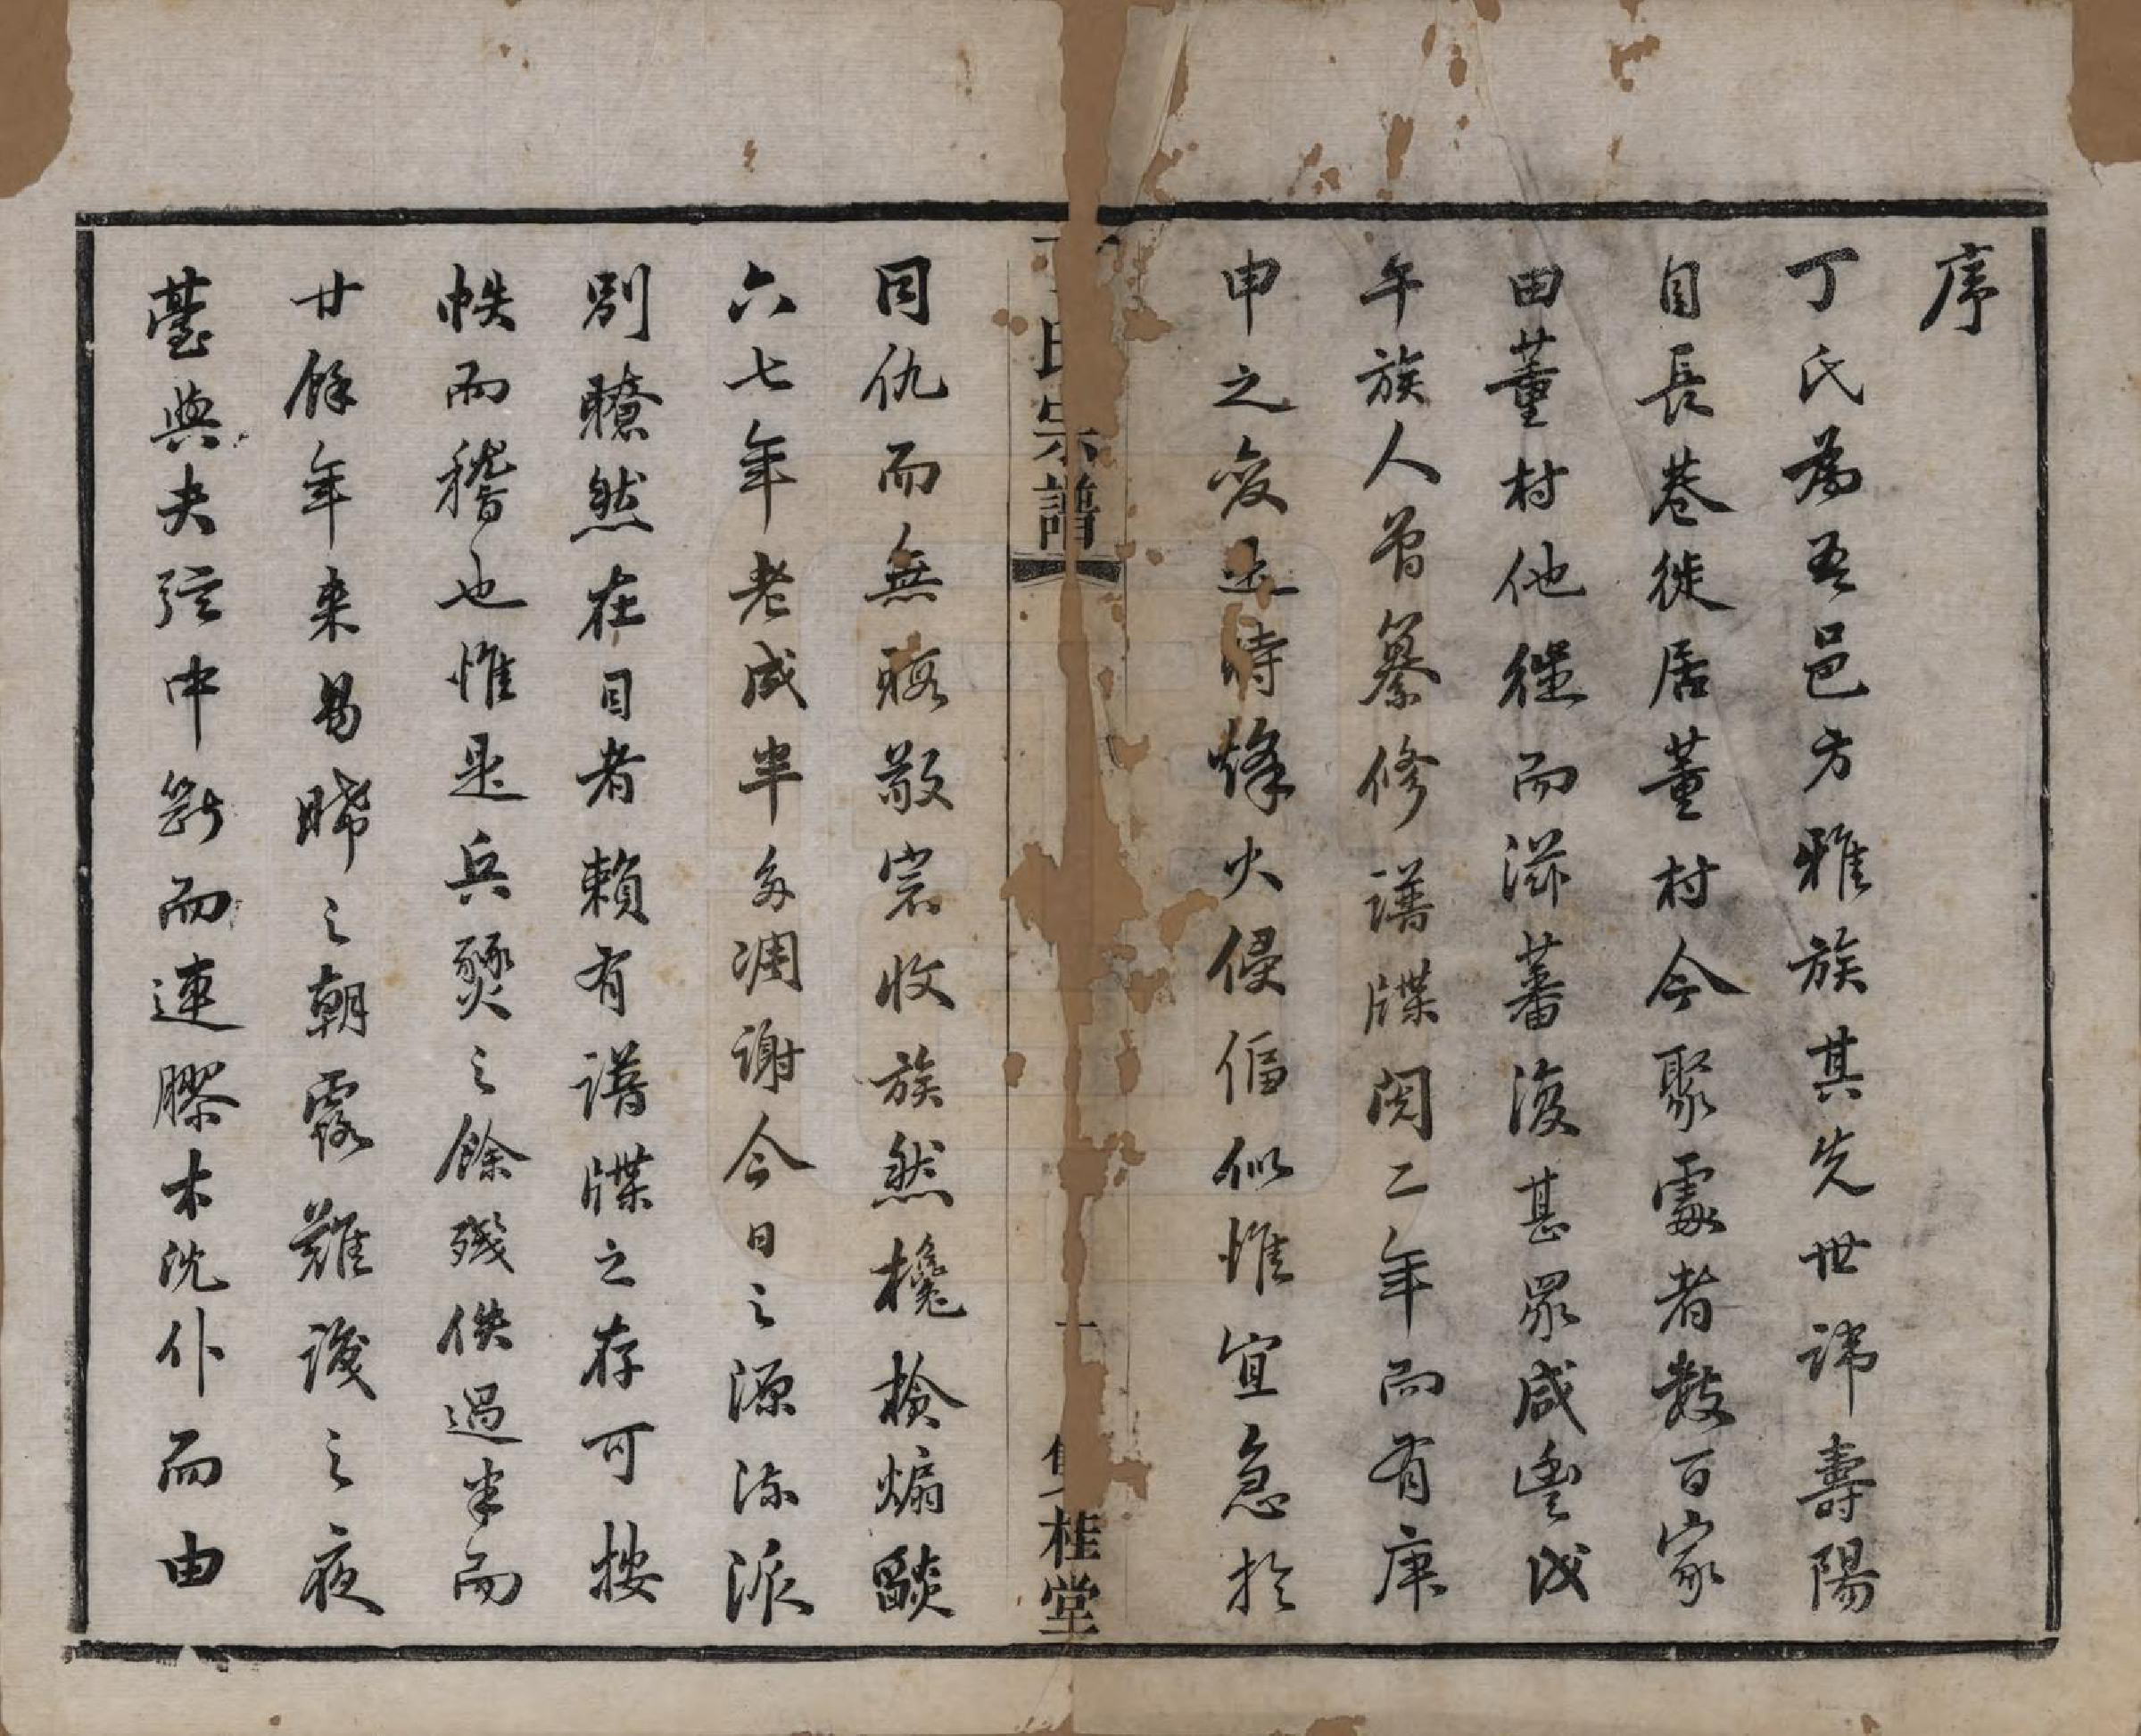 序
丁氏為吾邑方雅族其先世諱壽陽
自長巷徙居董村今聚處者數百家
由董村他徙而滋蕃復甚眾咸豐戊
午族人曾纂修譜牒閱二年而有庚
申之變此時烽火侵偪似惟宜急於
丁氏宗譜 一 桂堂
同仇而無暇敬宗收族然欃槍煽燄
六七年老成半多凋謝今日之源流派
別瞭然在目者賴有譜牒之存可按
帙而稽也惟是兵燹之餘殘佚過半而
廿餘年來易晞之朝露難護之夜
臺與夫弦中斷而連膠木沈仆而由